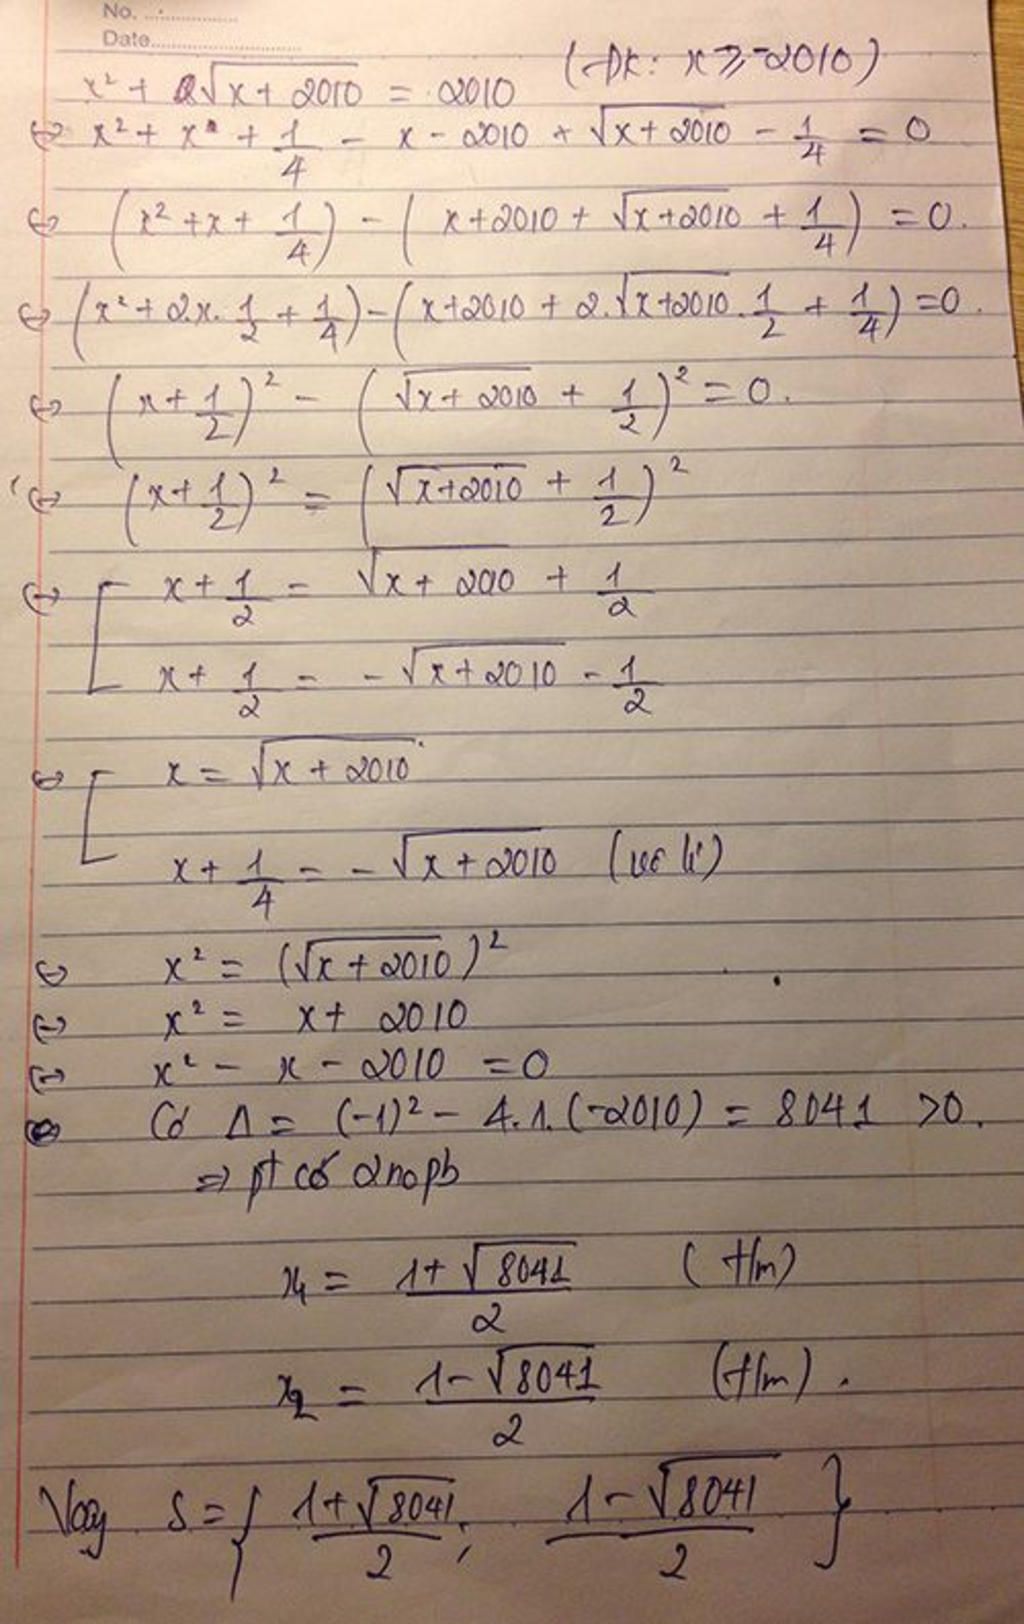 No. ...................
Date...................
x² + 2√(x + 2010) = 2010 (ĐK: x ≥ -2010)
⇔ x² + x + 1/4 - x - 2010 + √(x + 2010) - 1/4 = 0
⇔ (x² + x + 1/4) - (x + 2010 + √(x + 2010) + 1/4) = 0.
⇔ (x² + 2.x.1/2 + 1/4) - (x + 2010 + 2.√(x + 2010).1/2 + 1/4) = 0.
⇔ (x + 1/2)² - (√(x + 2010) + 1/2)² = 0.
⇔ (x + 1/2)² = (√(x + 2010) + 1/2)²
⇔ [ x + 1/2 = √(x + 2010) + 1/2
x + 1/2 = -√(x + 2010) - 1/2
⇔ [ x = √(x + 2010)
x + 1/4 = -√(x + 2010) (vô lí)
⇔ x² = (√(x + 2010))²
⇔ x² = x + 2010
⇔ x² - x - 2010 = 0
Có Δ = (-1)² - 4.1.(-2010) = 8041 > 0.
⇒ pt có 2 no pb
x₁ = (1 + √8041)/2 (t/m)
x₂ = (1 - √8041)/2 (t/m).
Vậy S = { (1 + √8041)/2 ; (1 - √8041)/2 }